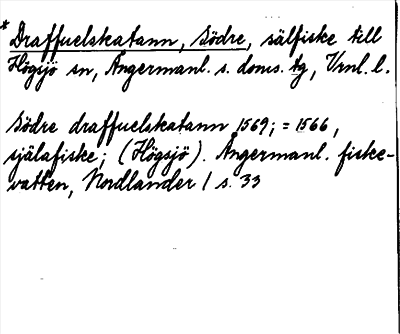 * Draffuelskatann, Södre, sälfiske till
Högsjö sn, Ångermanl. s. doms. tg, Vrnl. l.
Södre draffuelskatann 1569; = 1566,
själafiske; (Högsjö). Ångermanl. fiske-
vatten, Nordlander 1 s. 33